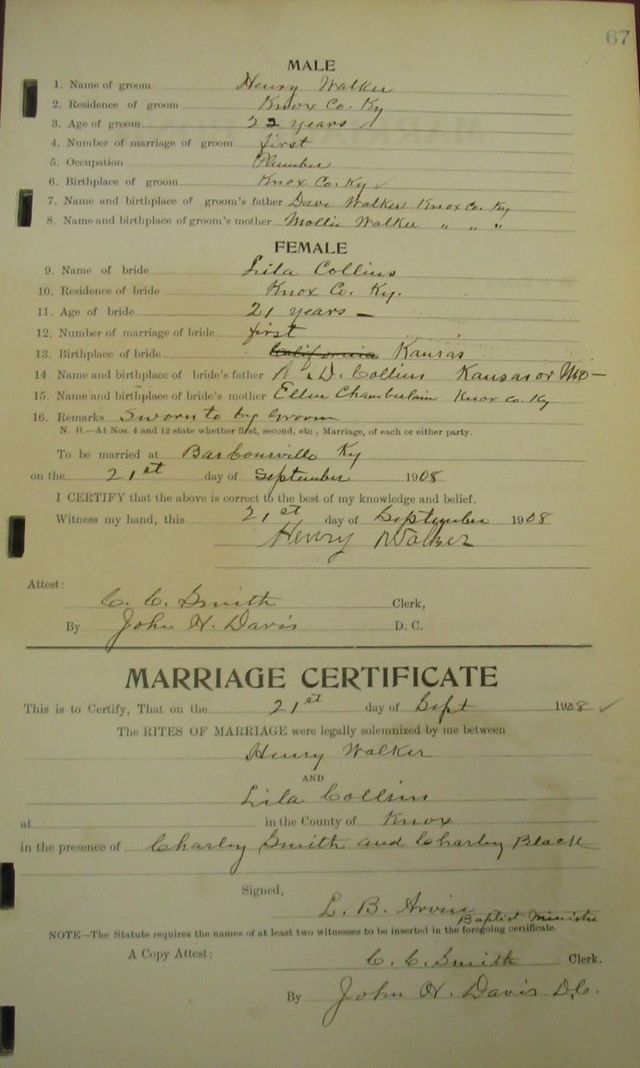 67
MALE
1. Name of groom Henry Walker
2. Residence of groom Knox Co. Ky
3. Age of groom 22 years
4. Number of marriage of groom first
5. Occupation Plumber
6. Birthplace of groom Knox Co. Ky
7. Name and birthplace of groom's father Dave Walker Knox Co. Ky
8. Name and birthplace of groom's mother Mollie Walker " " "
FEMALE
9. Name of bride Lila Collins
10. Residence of bride Knox Co. Ky.
11. Age of bride 21 years —
12. Number of marriage of bride first
13. Birthplace of bride California Kansas
14. Name and birthplace of bride's father A. D. Collins Kansas or Mo —
15. Name and birthplace of bride's mother Ellen Chamberlain Knox Co. Ky
16. Remarks Sworn to by Groom
N. B.—At Nos. 4 and 12 state whether first, second, etc., Marriage, of each or either party.
To be married at Barbourville Ky
on the 21st day of September 1908
I CERTIFY that the above is correct to the best of my knowledge and belief.
Witness my hand, this 21st day of September 1908
Henry Walker
Attest:
C. C. Smith Clerk,
By John H. Davis D. C.
MARRIAGE CERTIFICATE
This is to Certify, That on the 21st day of Sept 1908
The RITES OF MARRIAGE were legally solemnized by me between
Henry Walker
AND
Lila Collins
at in the County of Knox
in the presence of Charley Smith and Charley Black
Signed,
L. B. Arvin
Baptist Minister
NOTE—The Statute requires the names of at least two witnesses to be inserted in the foregoing certificate.
A Copy Attest: C. C. Smith Clerk.
By John H. Davis D.C.